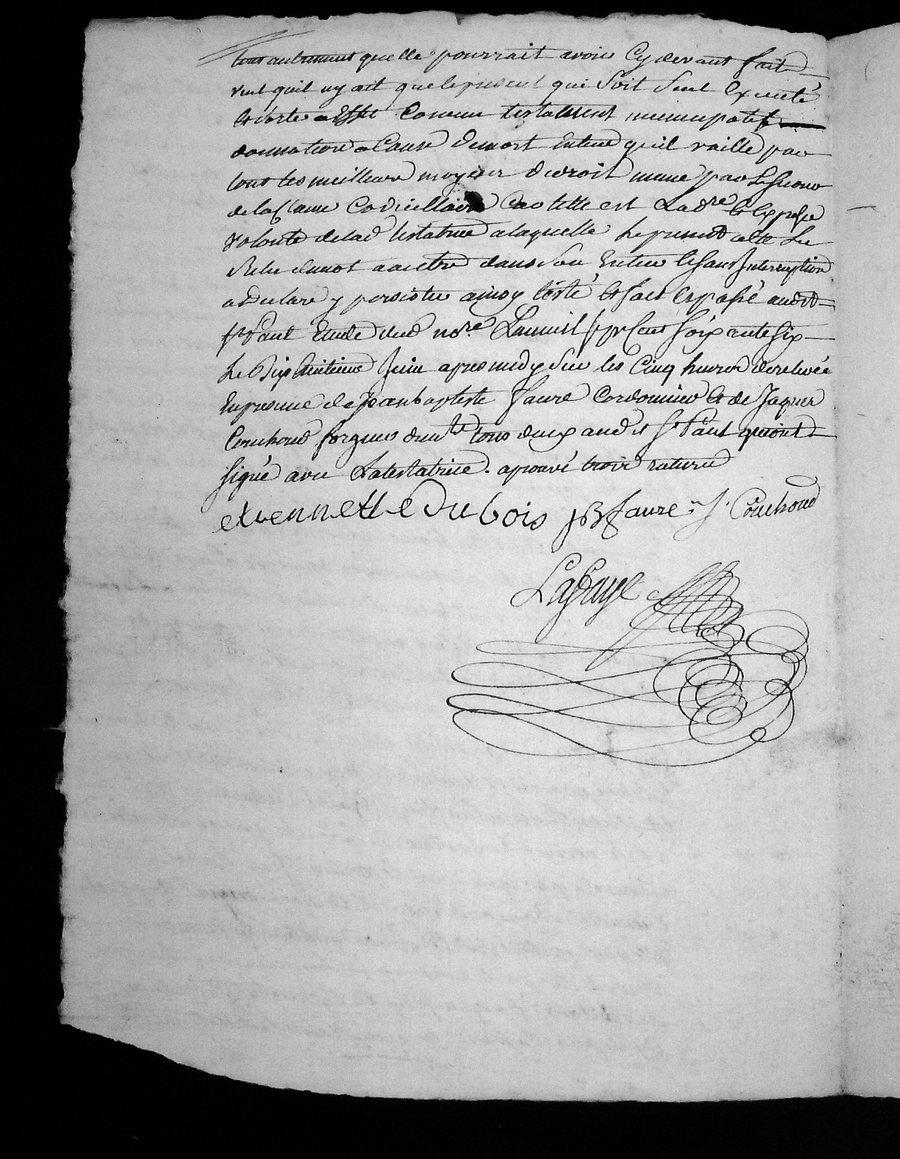 tous autrement quelle pourrait avoir Cy devant fait
veut quil ny ait que le present qui Soit Seul Executé
Et sorte a Effet Comme testament nuncupatif
donnation a Cause de mort Entend quil vaille par
tous les meilleurs moyens de droit meme par
de la Clause Codicillaire Car telle est Exprese
volonté de lad testatrice a laquelle le present
de mot a autre dans Son Entier Et Sans Interruption
a declaré y persister ainsy testé Et fait Et passé audit
st Paul Etude dud nore Lan mil Sept Cent Soixante Six
Le Dix huitieme Juin apres midy Sur les Cinq heures de relevée
En presence de Jean baptiste faure Cordonnier Et de Jaques
Couchoud tous deux aud st Paul qui ont
Signé avec La testatrice. aprouvé trois ratures
etiennette Dubois JB faure J. Couchoud
Lafaye